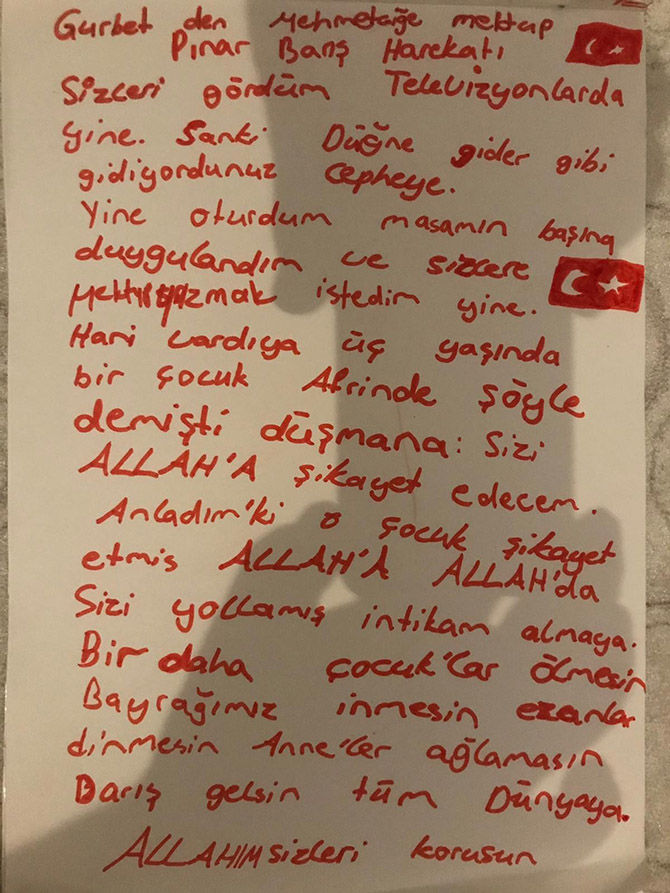 Gurbet den Mehmetçiğe mektup
Pınar Barış Harekatı
Sizleri gördüm Televizyonlarda
yine. Sanki Düğne gider gibi
gidiyordunuz Cepheye.
Yine oturdum masamın başına
duygulandım ve sizlere
yazmak istedim yine.
Hani vardıya üç yaşında
bir çocuk Afrinde şöyle
demişti düşmana: Sizi
ALLAH'A şikayet edecem.
Anladım'ki o çocuk şikayet
etmis ALLAH'A ALLAH'da
Sizi yollamış intikam almaya.
Bir daha çocuk'lar ölmesin
Bayrağımız inmesin ezanlar
dinmesin Anne'ler ağlamasın
Barış gelsin tüm Dünyaya.
ALLAHIM sizleri korusun